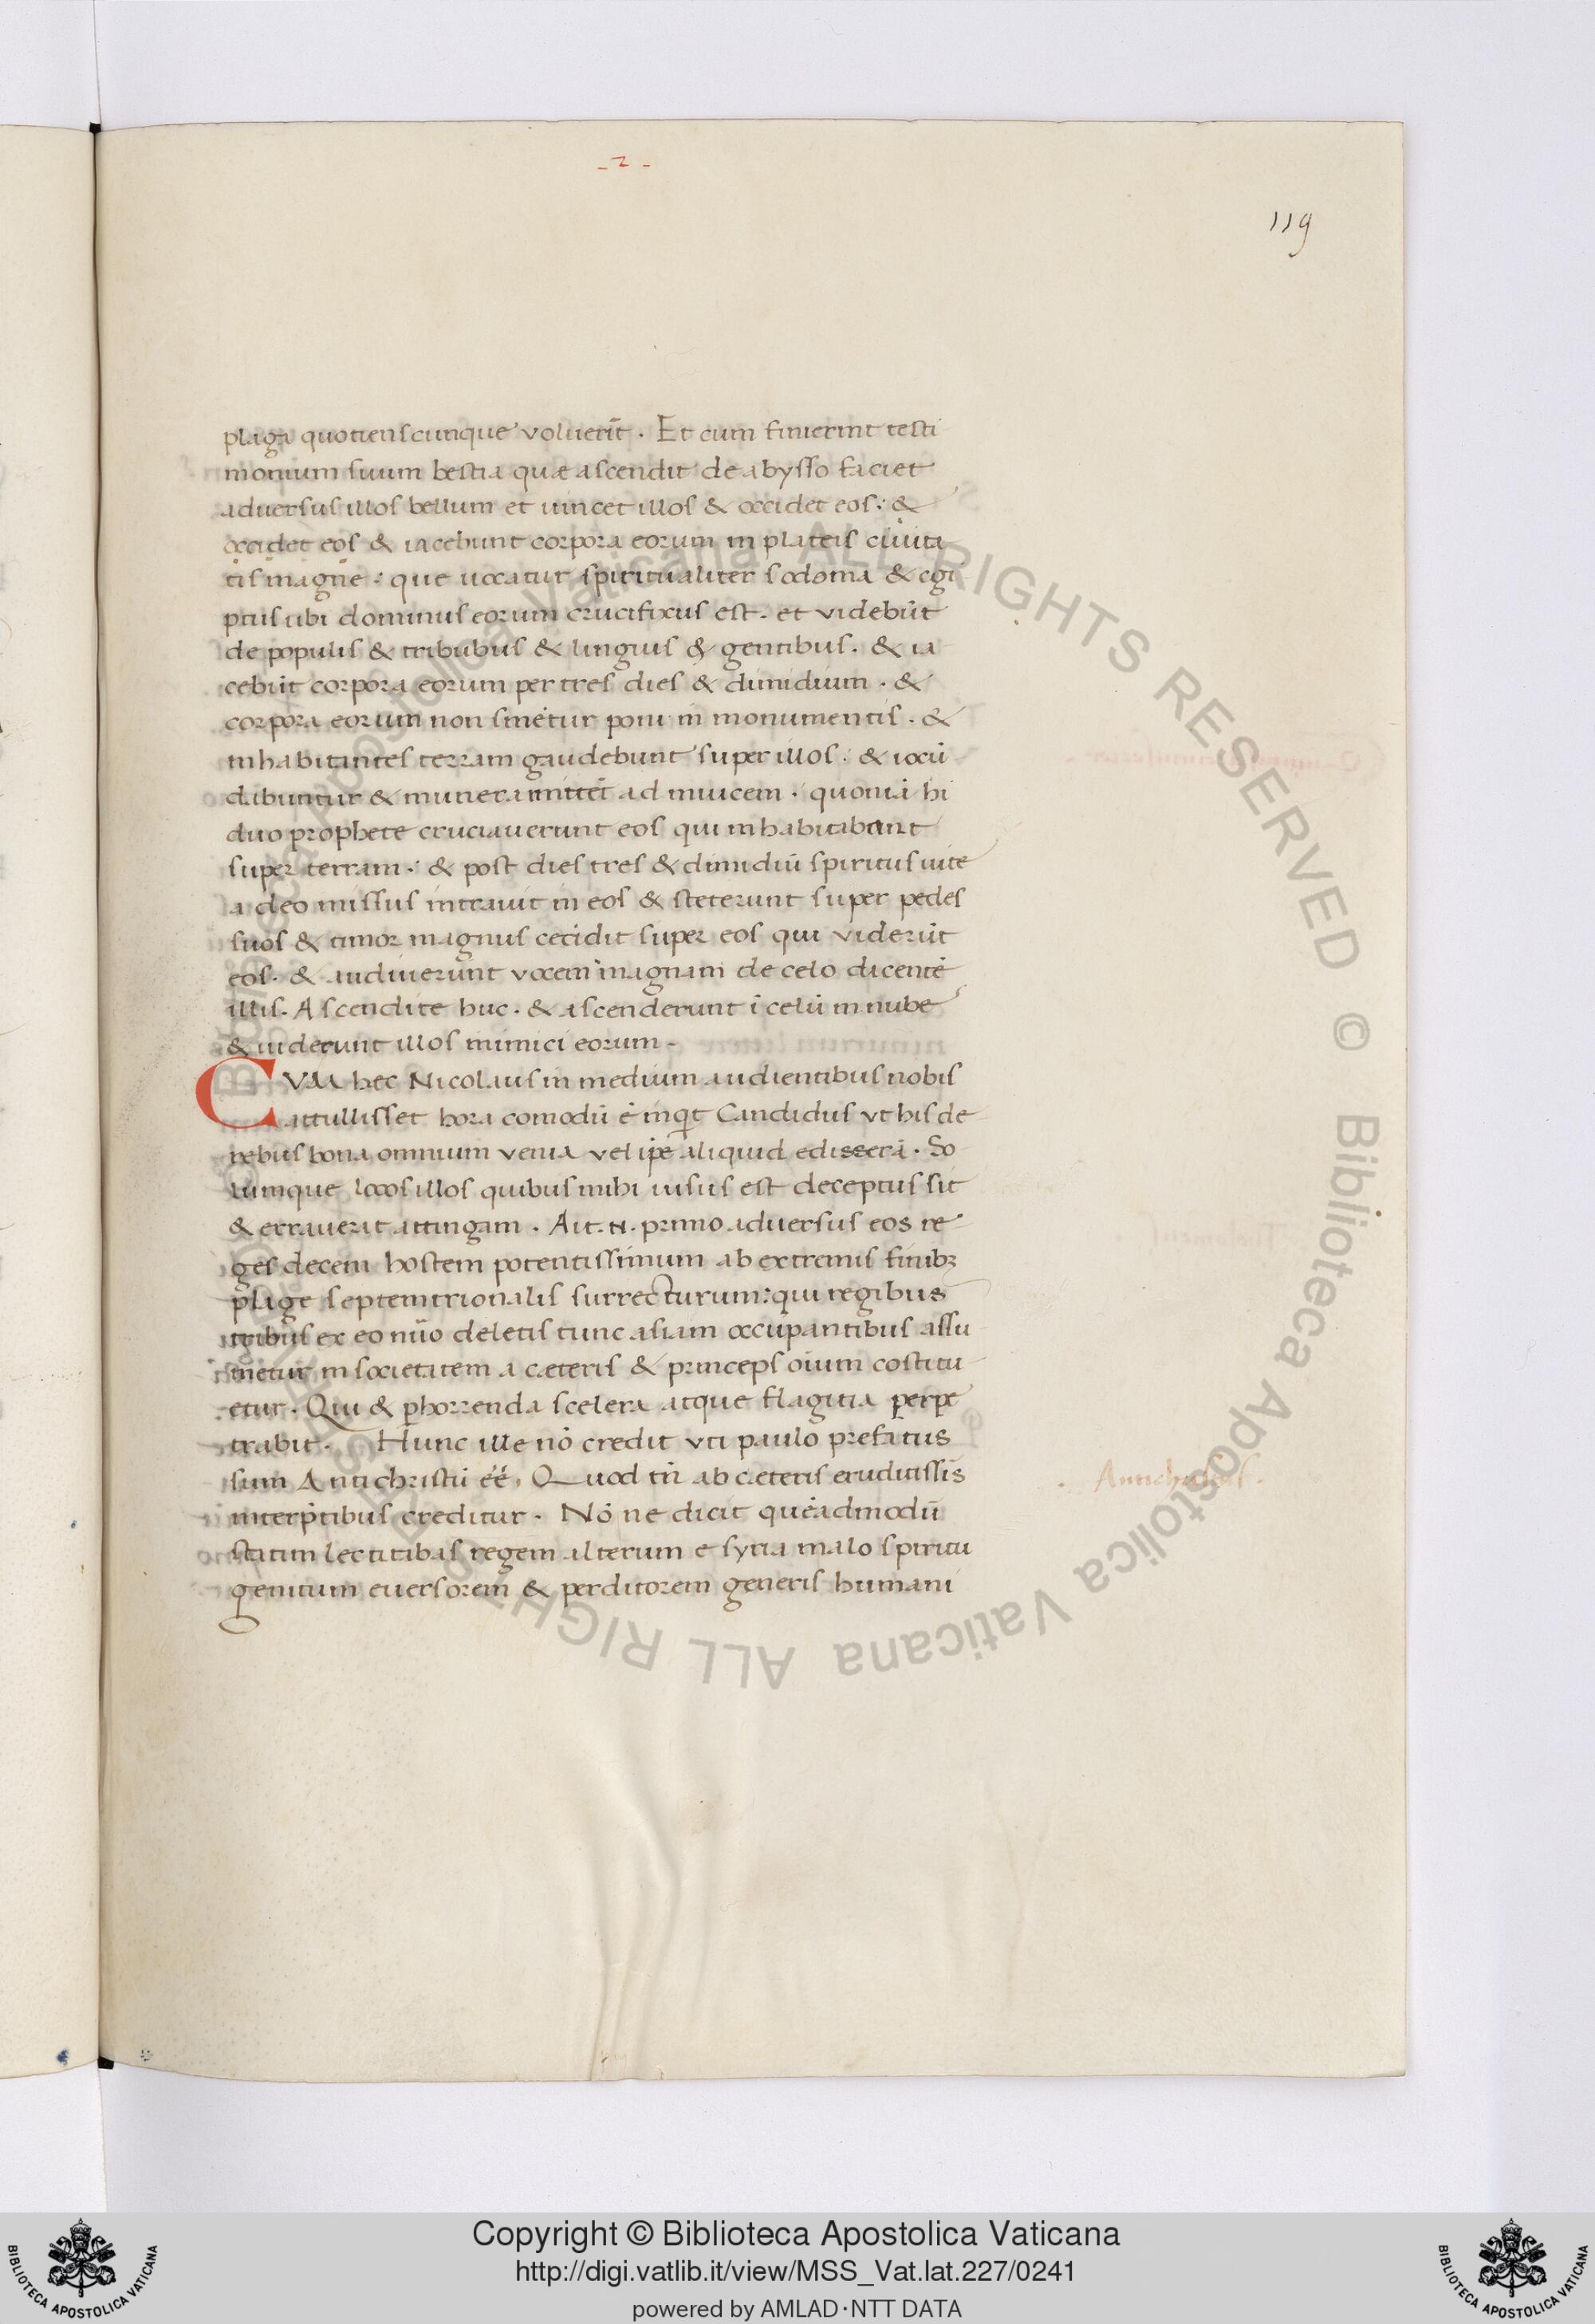 - 2 -
119
plaga quotienscunque voluerīt . Et cum finierint testi
monium suum bestia quæ ascendit de abysso faciet
adversus illos bellum et uincet illos & occidet eos : &
occidet eos & iacebunt corpora eorum in plateis ciuita
tis magne : que uocatur spiritualiter sodoma & egi
ptus ubi dominus eorum crucifixus est . et videbūt
de populis & tribubus & linguis & gentibus . & ia
cebūt corpora eorum per tres dies & dimidium . &
corpora eorum non sinētur poni in monumentis . &
inhabitantes terram gaudebunt super illos : & iocū
dabuntur & munera mittēt ad inuicem . quoniā hi
duo prophete cruciauerunt eos qui inhabitabant
super terram : & post dies tres & dimidiū spiritus uite
a deo missus intrauit in eos & steterunt super pedes
suos & timor magnus cecidit super eos qui viderūt
eos . & audiuerunt vocem magnam de celo dicentē
illis . Ascendite huc . & ascenderunt ī celū in nube
& uiderunt illos inimici eorum .
CVM hec Nicolaus in medium audientibus nobis
attullisset hora comodū ē inqt Candidus vt his de
rebus bona omnium venia vel ipe aliquid edisserā . So
lumque locos illos quibus mihi uisus est deceptus sit
& errauerit attingam . Ait . n . primo adversus eos re
ges decem hostem potentissimum ab extremis finibꝫ
plage septemtrionalis surrecturum : qui regibus
tribus ex eo nūo deletis tunc asiam occupantibus assu
metur in societatem a cæteris & princeps oīum costitu
etur . Qui & phorrenda scelera atque flagitia perpe
trabit . Hunc ille nō credit vti paulo prefatus
sum Antichristū eē . Quod tn̄ ab cæteris eruditissīs
interp̄tibus creditur . Nō ne dicit quēadmodū
statim lectitabas regem alterum e syria malo spiritu
genitum euersorem & perditorem generis humani
. Antichristus .
Copyright © Biblioteca Apostolica Vaticana
http://digi.vatlib.it/view/MSS_Vat.lat.227/0241
powered by AMLAD·NTT DATA
BIBLIOTECA APOSTOLICA VATICANA
BIBLIOTECA APOSTOLICA VATICANA
Biblioteca Apostolica Vaticana ALL RIGHTS RESERVED © Biblioteca Apostolica Vaticana ALL RIGHTS RESERVED ©